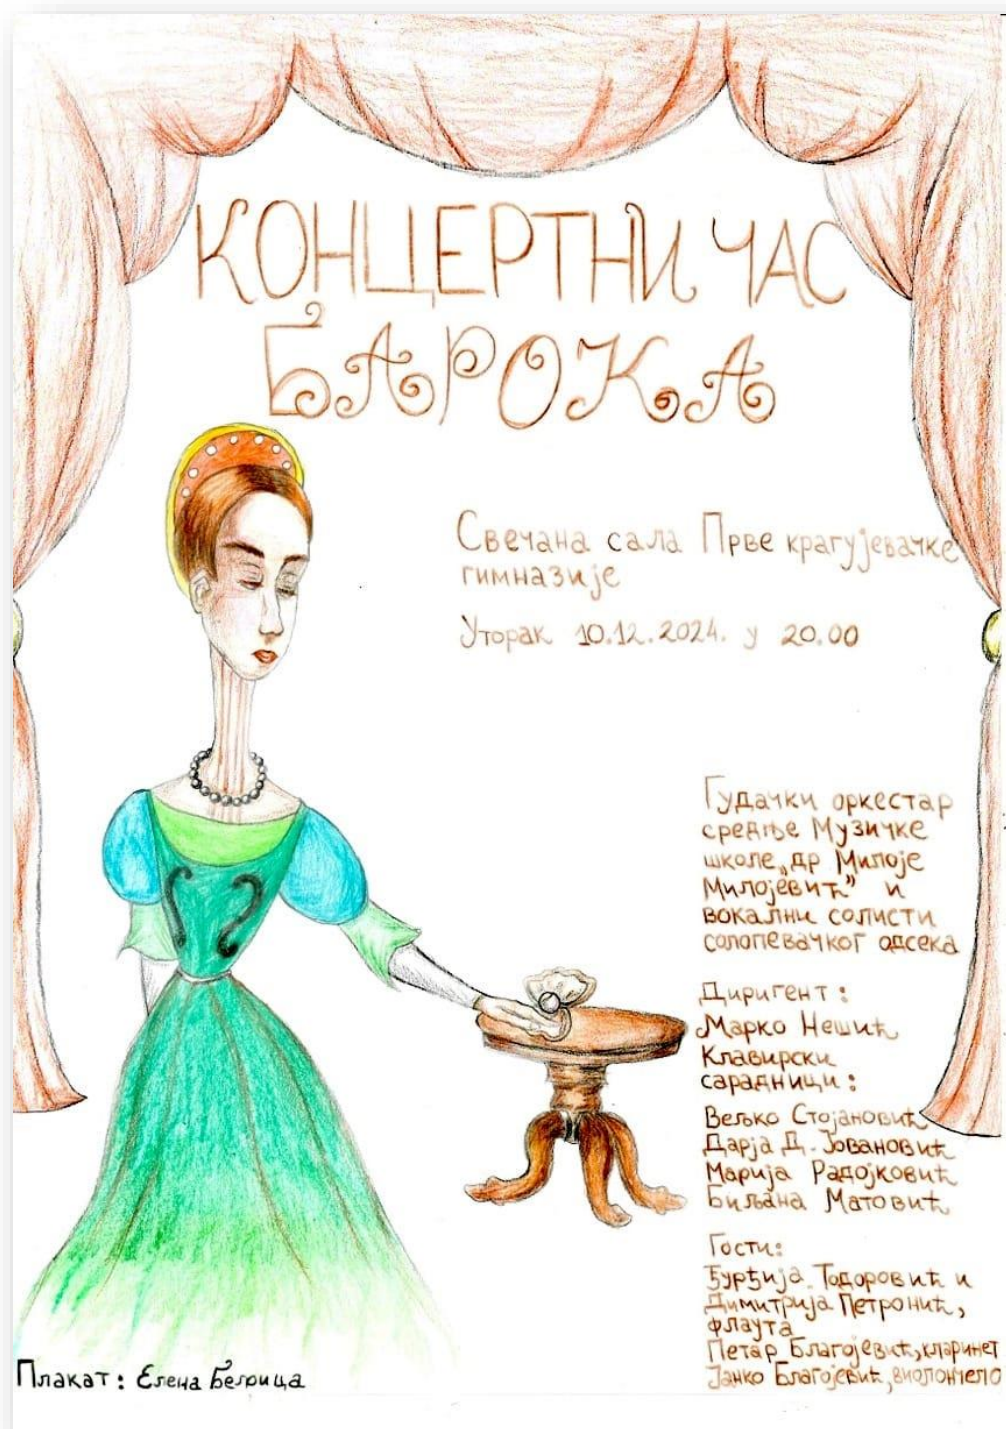 КОНЦЕРТНИ ЧАС
БАРОКА
Свечана сала Прве крагујевачке
гимназије
Уторак 10.12.2024. у 20.00
Гудачки оркестар
средње Музичке
школе „др Милоје
Милојевић” и
вокални солисти
солопевачког одсека
Диригент:
Марко Нешић
Клавирски
сарадници:
Вељко Стојановић
Дарја Д. Јовановић
Марија Радојковић
Биљана Матовић
Гости:
Ђурђија Тодоровић и
Димитрија Петронић,
флаута
Петар Благојевић, кларинет
Јанко Благојевић, виолончело
Плакат: Елена